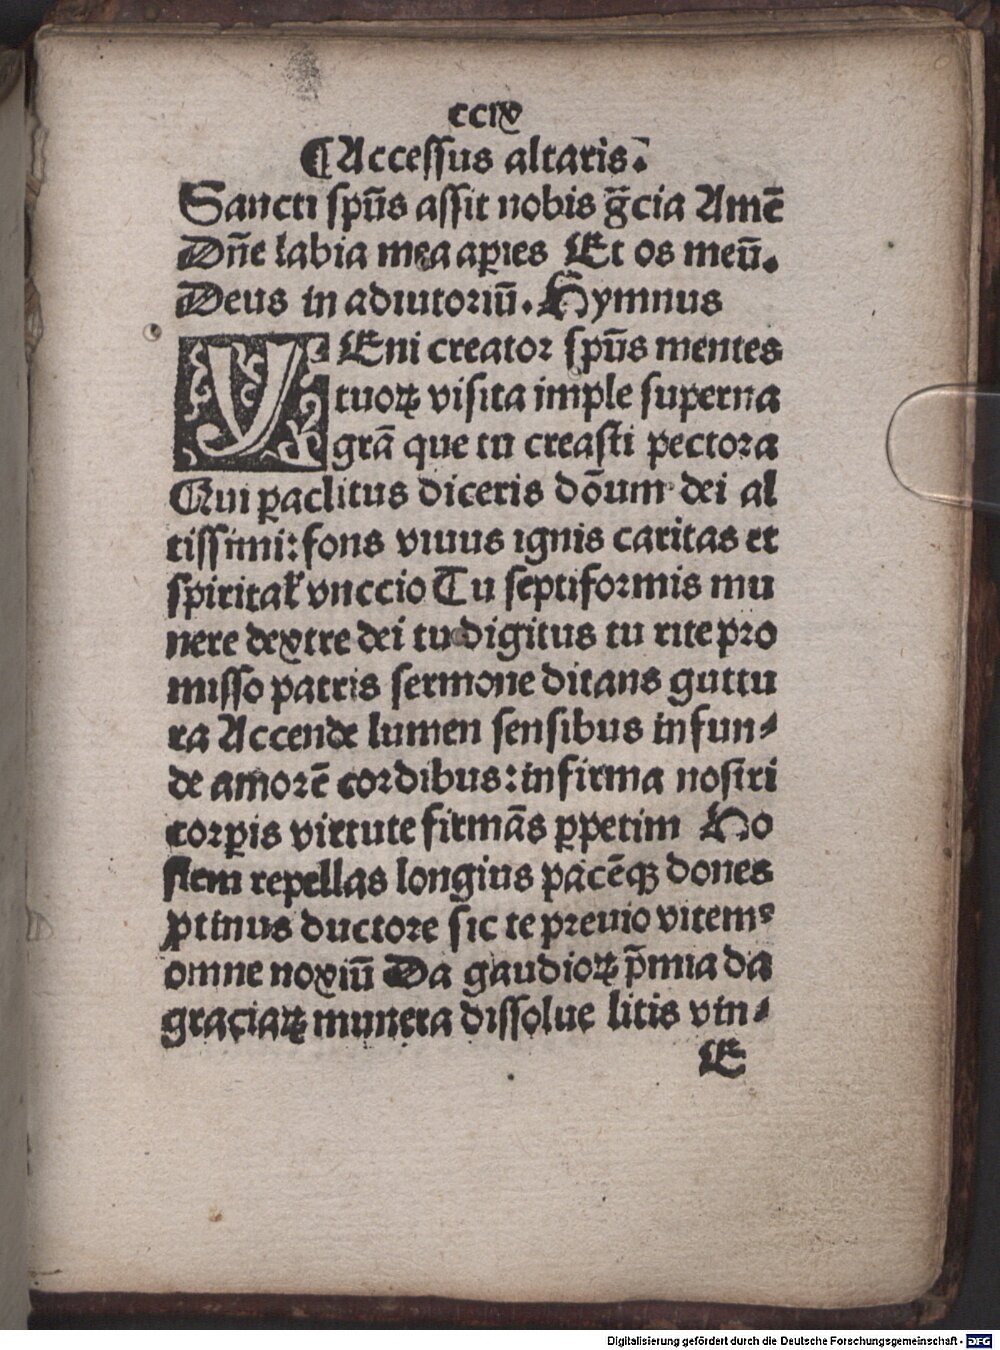 ccix
¶ Accessus altaris.
Sancti spūs assit nobis gr̄cia Amē
Dn̄e labia mea aꝑies Et os meū.
Deus in adiutoriū. Hymnus
VEni creator spūs mentes
tuoꝝ visita imple superna
grā que tu creasti pectora
Qui ꝑaclitus diceris dōum dei al
tissimi: fons viuus ignis caritas et
spiritaƚ vnccio Tu septiformis mu
nere dextre dei tu digitus tu rite pro
misso patris sermone ditans guttu
ra Accende lumen sensibus infun⸗
de amorē cordibus: infirma nostri
corꝑis virtute firmās ꝑpetim Ho
stem repellas longius pacēqꝫ dones
ꝓtinus ductore sic te preuio vitemꝰ
omne noxiū Da gaudioꝝ p̄mia da
graciaꝝ munera dissolue litis vin⸗
E
Digitalisierung gefördert durch die Deutsche Forschungsgemeinschaft - DFG